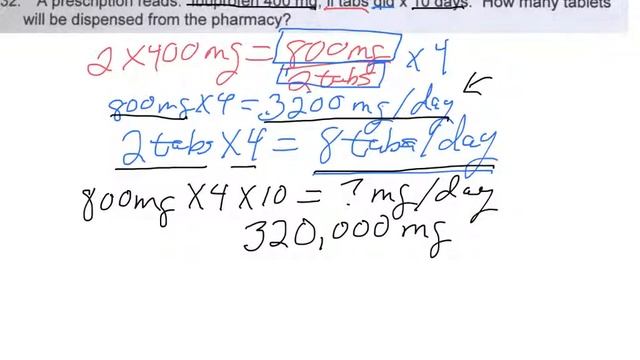 32. A prescription reads: Ibuprofen 400 mg, ii tabs qid x 10 days. How many tablets
will be dispensed from the pharmacy?
2 X 400 mg = 800mg x 4
2 tabs
800mg X 4 = 3200 mg/day
2 tabs X 4 = 8 tabs/day
800mg X 4 X 10 = ? mg/day
320,000 mg